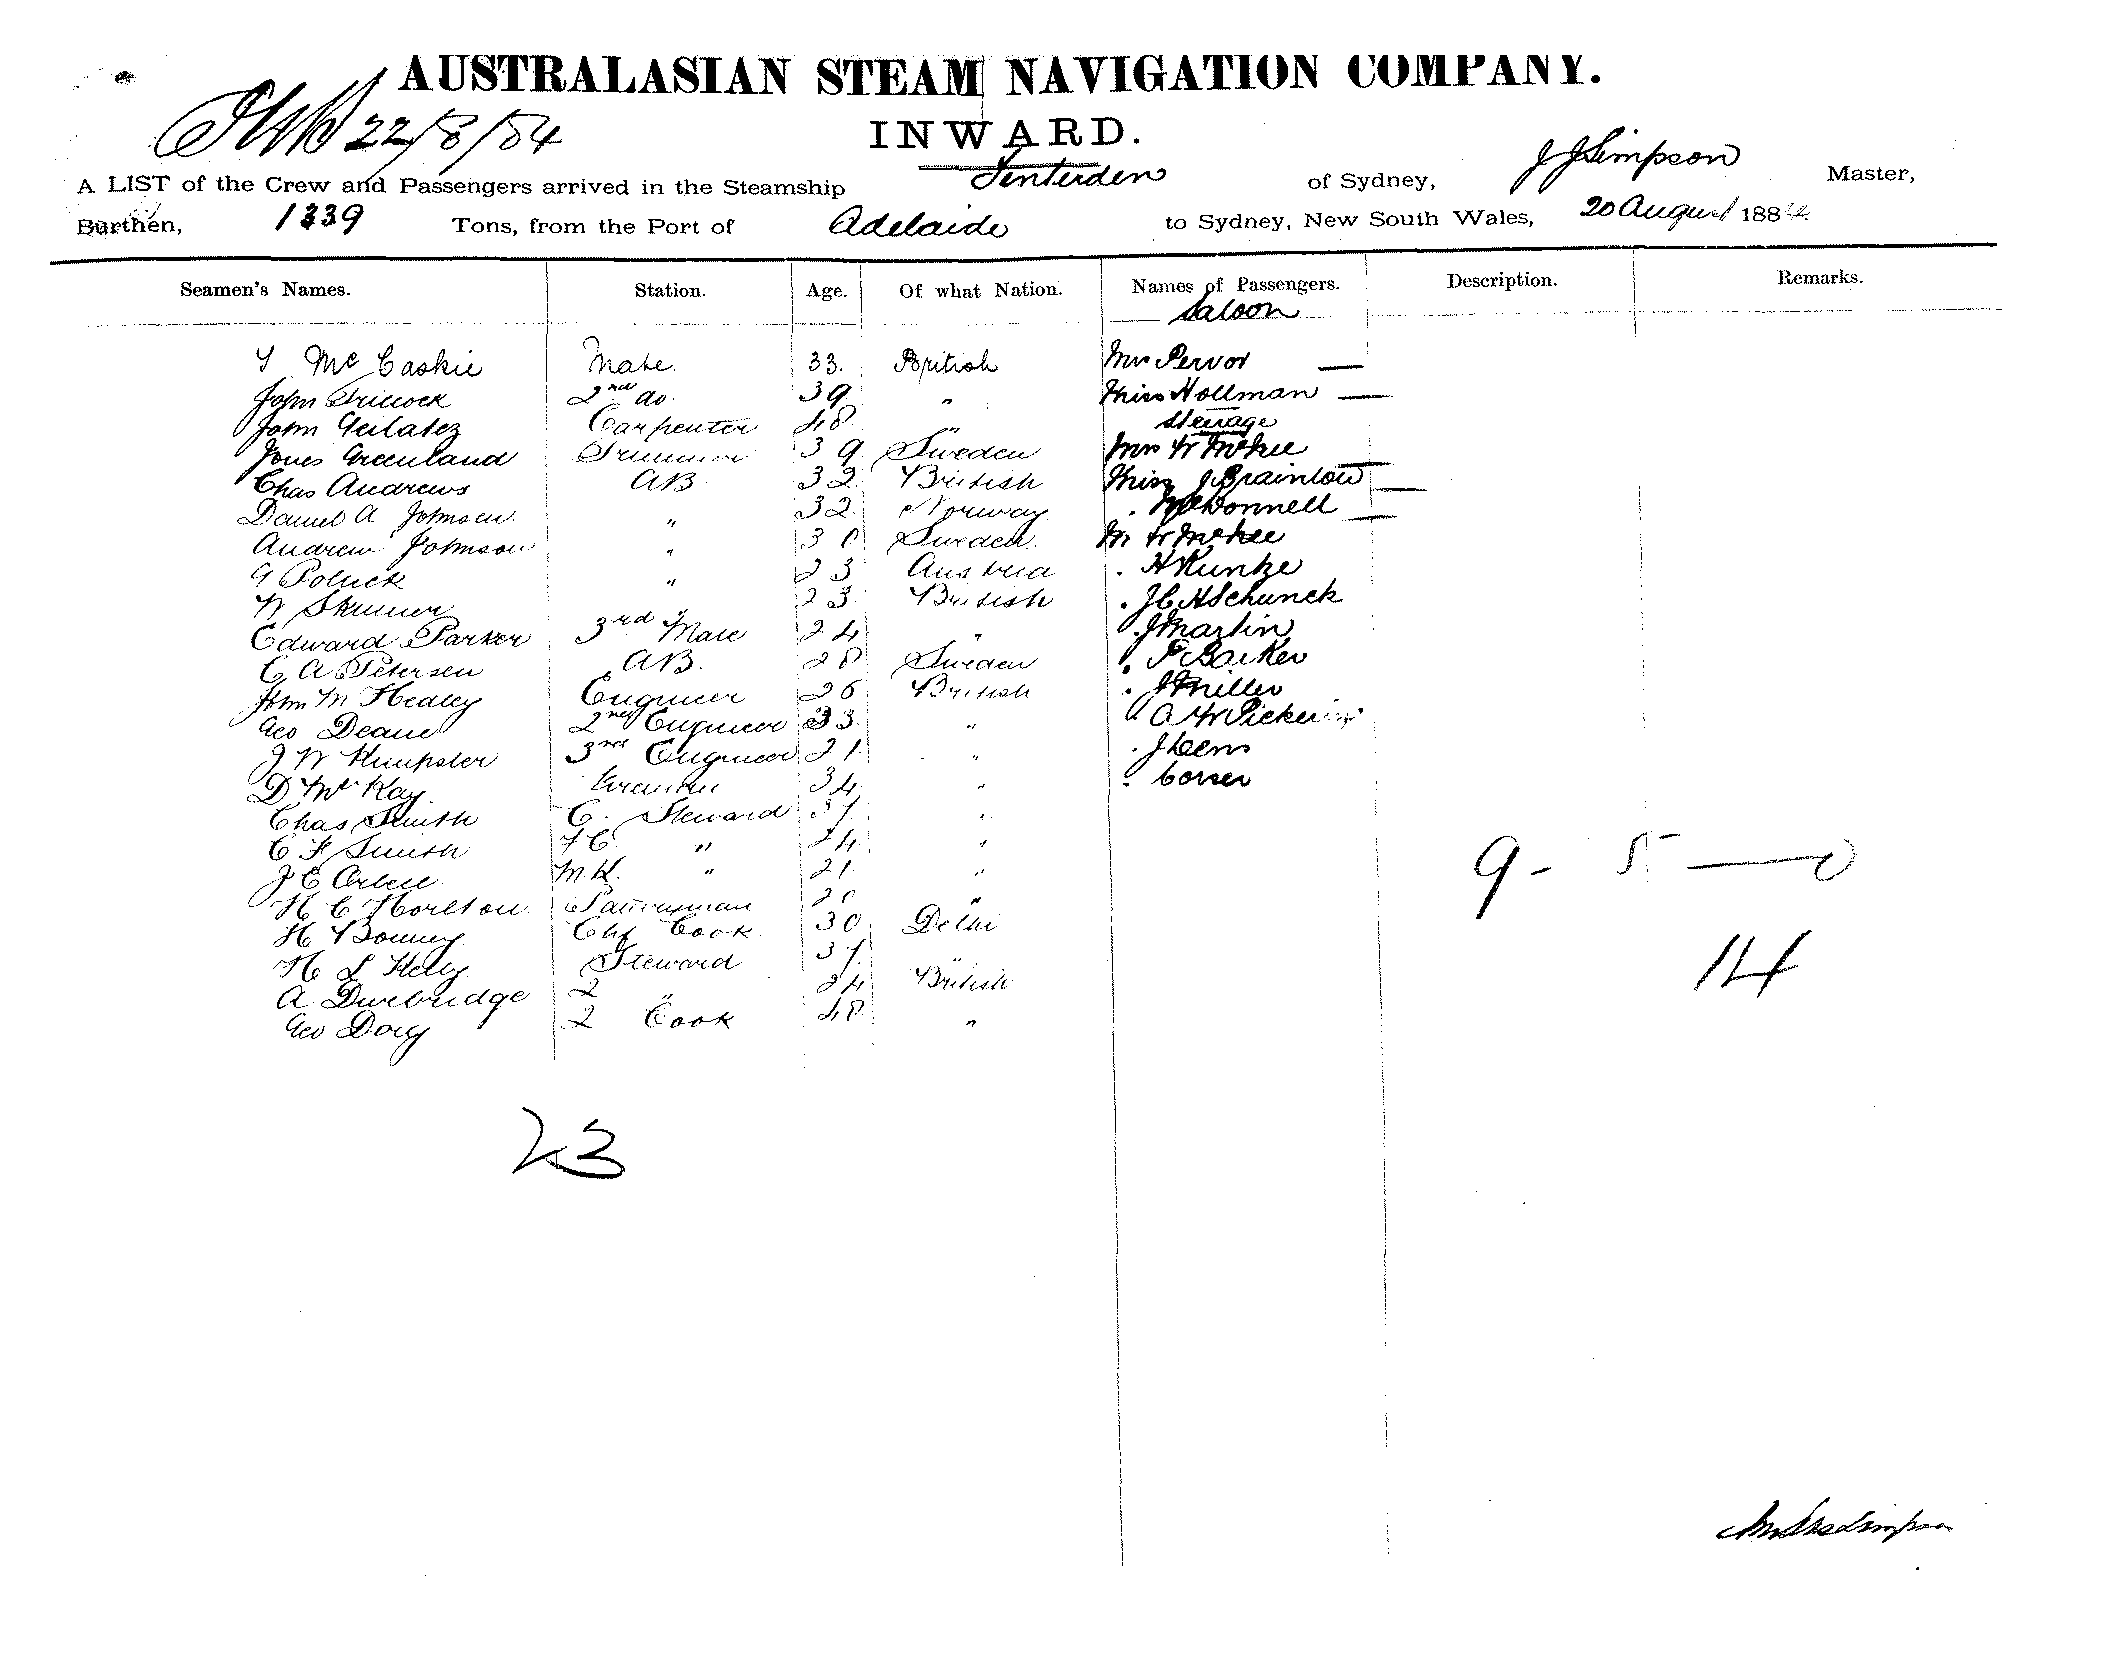 AUSTRALASIAN STEAM NAVIGATION COMPANY.
22/8/84
INWARD.
A LIST of the Crew and Passengers arrived in the Steamship Tenterden of Sydney, J J Simpson Master,
Burthen, 1339 Tons, from the Port of Adelaide to Sydney, New South Wales, 20 August 1884
Seamen's Names. Station. Age. Of what Nation. Names of Passengers. Description. Remarks.
Saloon
Mc Caskie Mate 33. British Mrs Pervor —
John 2nd do. 39 " Miss Hollman —
John Carpenter 48 " Steerage
Jones Greenland 39 Sweden Mrs W McKee
Chas Andrews AB 32 British Miss J Brainlow —
Daniel A Johnsen " 32 Norway . McDonnell —
Andrew Johnson " 30 Sweden. M W McKee
" 23 Austria . H Kunke
W Skinner 23 British . J C H Schunck
Edward Parker 3rd Mate 24 " . J Martin
C A Petersen AB. 28 Sweden . F Barker
John M Healey Engineer 26 British . J Miller
Geo Deane 2nd Engineer 33 " . C W Pickering
J W Kempster 3rd Engineer 21 " . J Lens
D McKay 34 " .
Chas Smith C. Steward 37 "
C F Smith F C " 24 "
J C M.R. " 21 "
H C Horlton Pantryman 20 "
H Bonney Chf Cook 30 Delhi
H L Kelly Steward 37
A Durbridge 2 " 24 British
Geo Dorg 2 Cook 48 "
9 - 5 — 0
14
23
Simpson